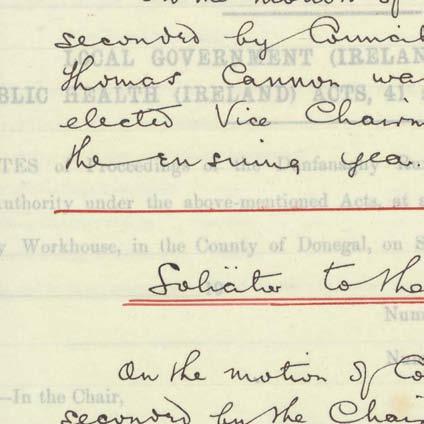 On the motion of
seconded by Council
LOCAL GOVERNMENT (IRELAN
Thomas Cannon wa
BLIC HEALTH (IRELAND) ACTS, 41
elected Vice Chairm
the ensuing year.
TES of Proceedings of the Dunfanaghy Ru
uthority under the above-mentioned Acts, at
y Workhouse, in the County of Donegal, on S
Solicitor to the
Num
On the motion of Co
Nu
—In the Chair,
seconded by the Chair